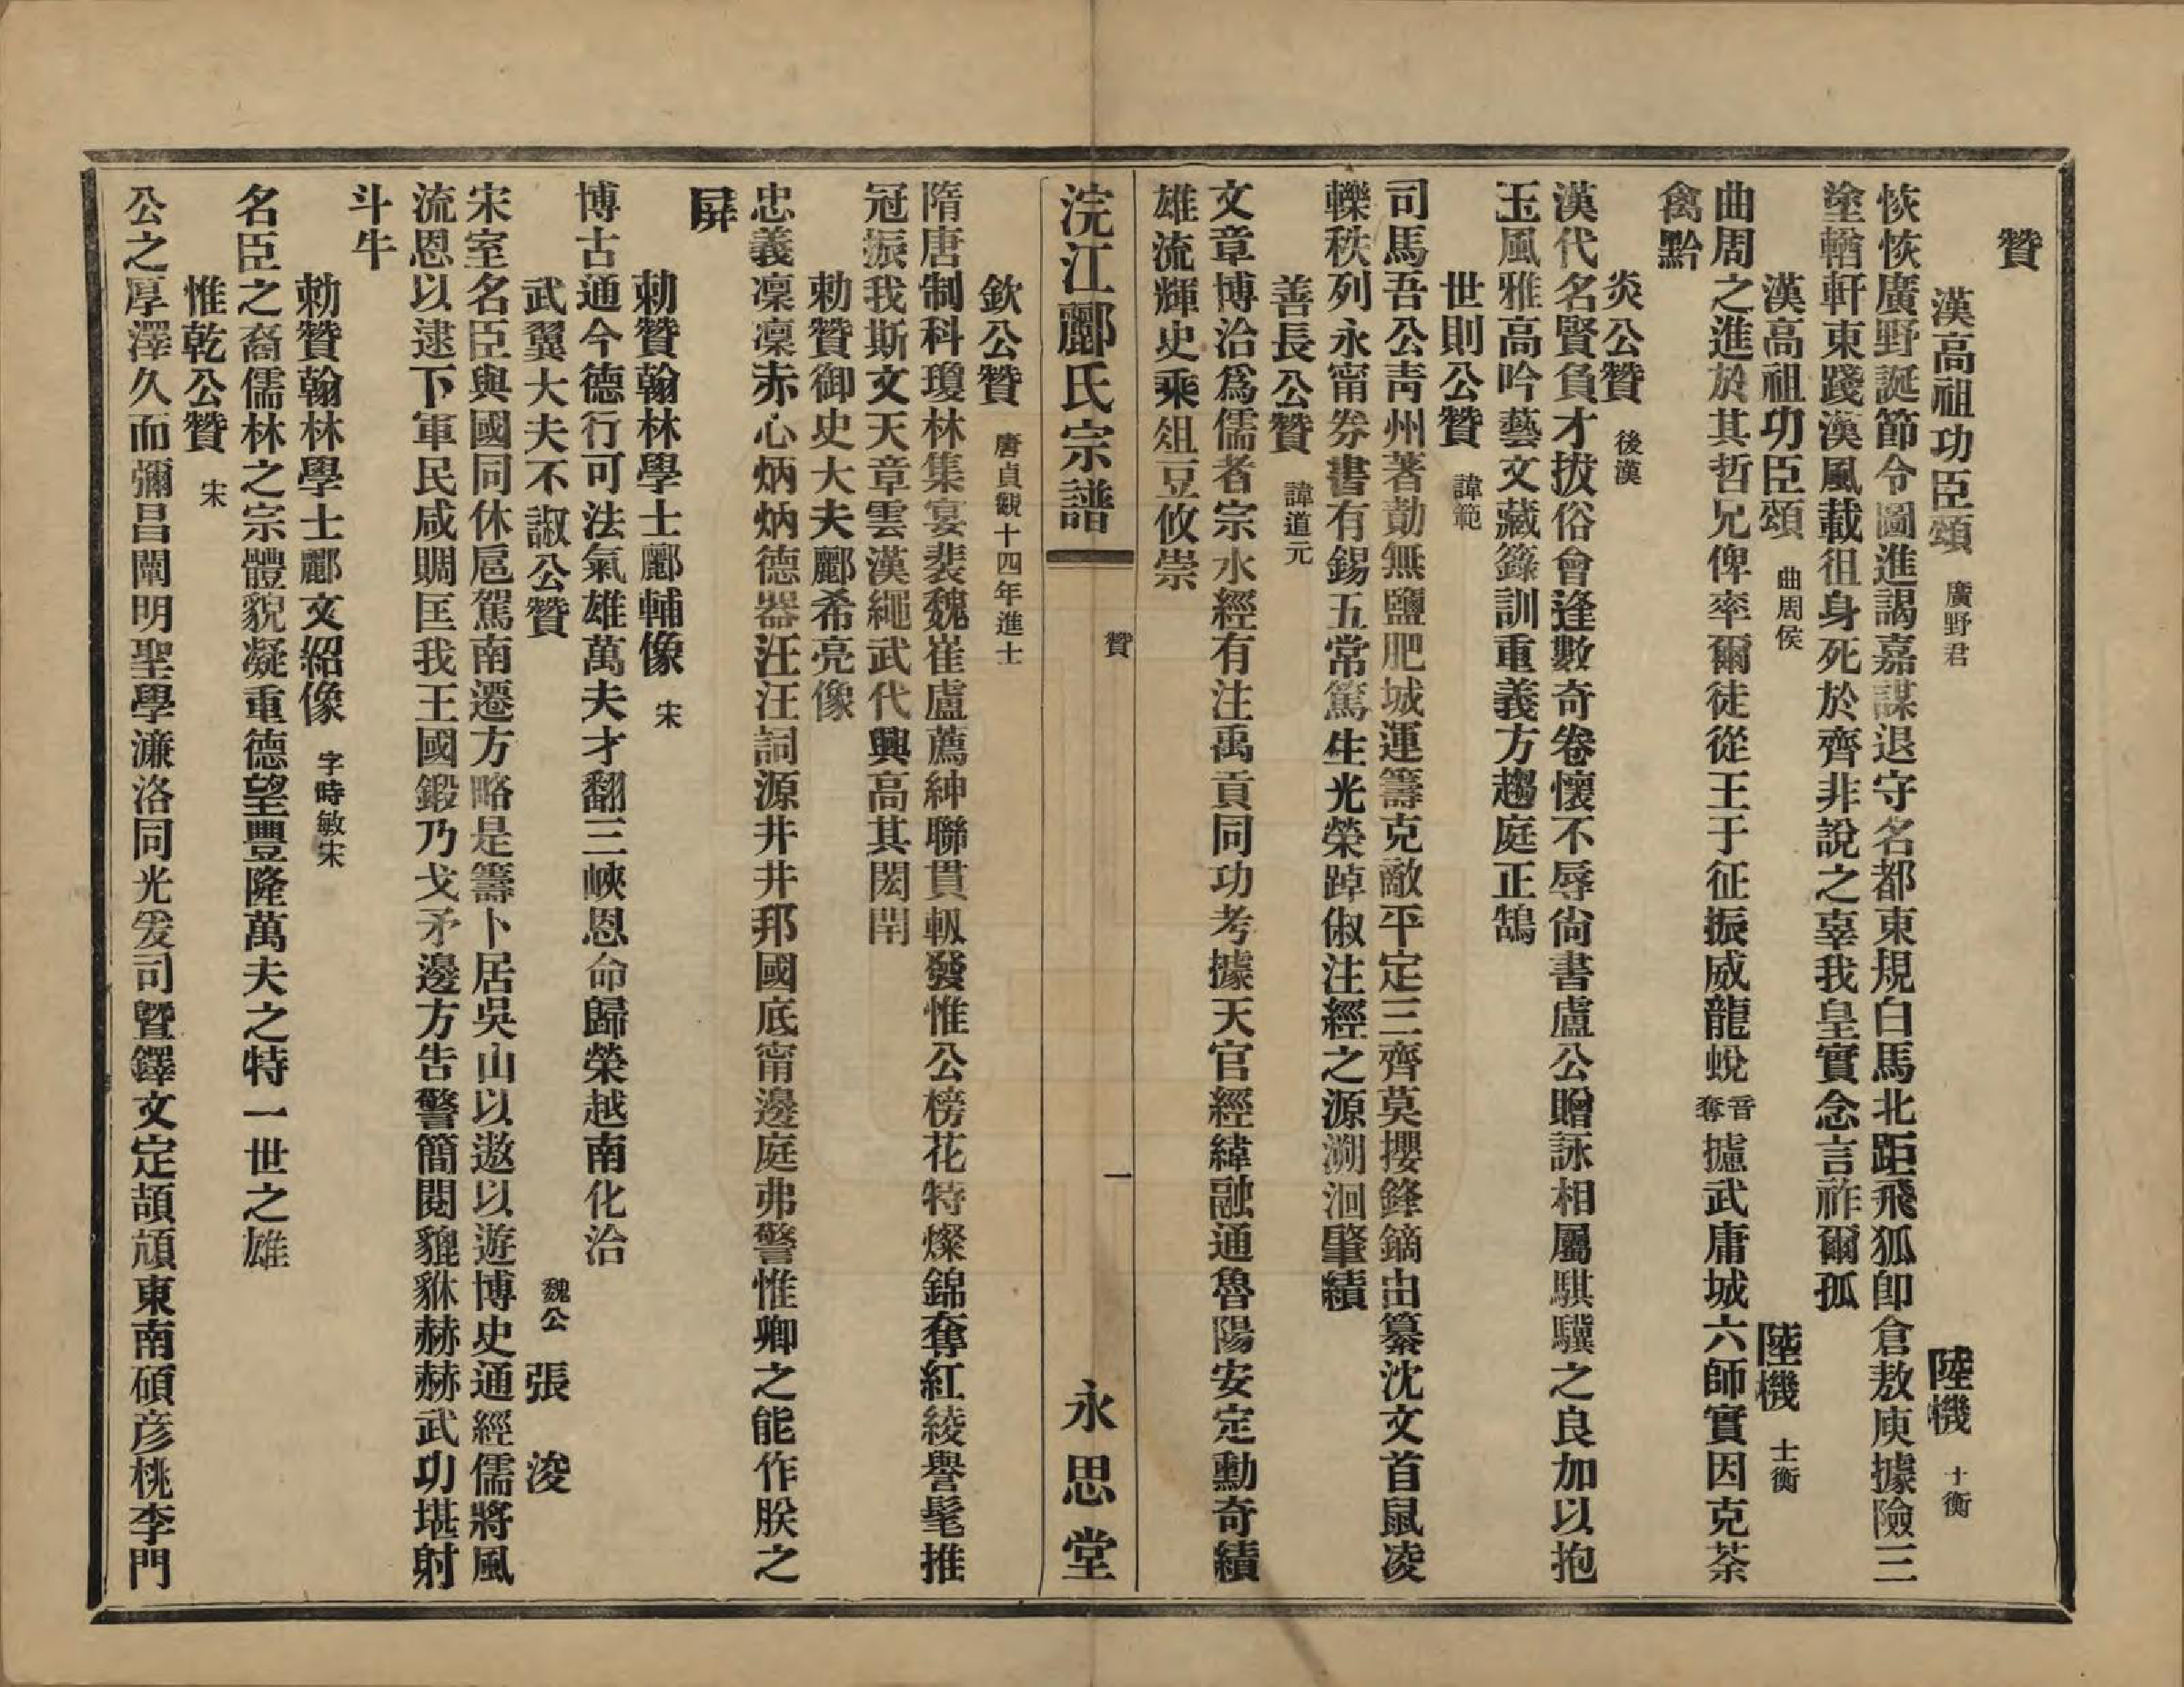 贊
漢高祖功臣頌 廣野君 陸機 士衡
恢恢廣野誕節令圖進謁嘉謀退守名都東規白馬北距飛狐卽倉敖庾據險三
塗輶軒東踐漢風載徂身死於齊非說之辜我皇實念言祚爾孤
漢高祖功臣頌 曲周侯 陸機 士衡
曲周之進於其哲兄俾率爾徒從王于征振威龍蛻 音奪 攄武庸城六師實因克荼
禽黔
炎公贊 後漢
漢代名賢負才拔俗會逢數奇卷懷不辱尙書盧公贈詠相屬騏驥之良加以抱
玉風雅高吟藝文藏籙訓重義方趨庭正鵠
世則公贊 諱範
司馬吾公靑州著勣無鹽肥城運籌克敵平定三齊莫攖鋒鏑由纂沈文首鼠凌
轢秩列永甯劵書有錫五常篤生光榮踔俶注經之源溯洄肇績
善長公贊 諱道元
文章博洽爲儒者宗水經有注禹貢同功考據天官經緯融通魯陽安定勳奇績
雄流輝史乘俎豆攸崇
浣江酈氏宗譜 贊 一 永思堂
欽公贊 唐貞觀十四年進士
隋唐制科瓊林集宴裴魏崔盧薦紳聯貫軔發惟公榜花特燦錦奪紅綾譽髦推
冠振我斯文天章雲漢繩武代興高其閎閈
勅贊御史大夫酈希亮像
忠義凜凜赤心炳炳德器汪汪詞源井井邦國底甯邊庭弗警惟卿之能作朕之
屛
勅贊翰林學士酈輔像 宋
博古通今德行可法氣雄萬夫才翻三峽恩命歸榮越南化洽
武翼大夫不諔公贊 魏公 張浚
宋室名臣與國同休扈駕南遷方略是籌卜居吳山以遨以遊博史通經儒將風
流恩以逮下軍民咸賙匡我王國鍛乃戈矛邊方告警簡閱貔貅赫赫武功堪射
斗牛
勅贊翰林學士酈文紹像 字時敏宋
名臣之裔儒林之宗體貌凝重德望豐隆萬夫之特一世之雄
惟乾公贊 宋
公之厚澤久而彌昌闡明聖學濂洛同光爰司曁鐸文定頡頏東南碩彦桃李門